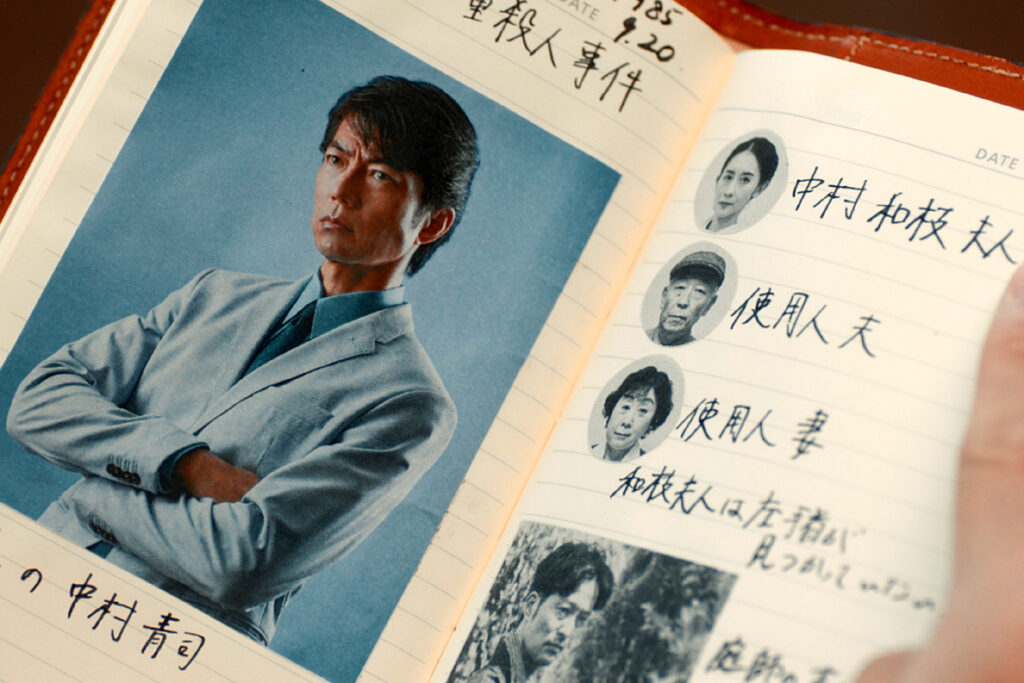 DATE 1985
9.20
重殺人事件
の 中村青司
DATE
中村 和枝 夫人
使用人 夫
使用人 妻
和枝夫人は左手首が
見つかっていない
庭師の